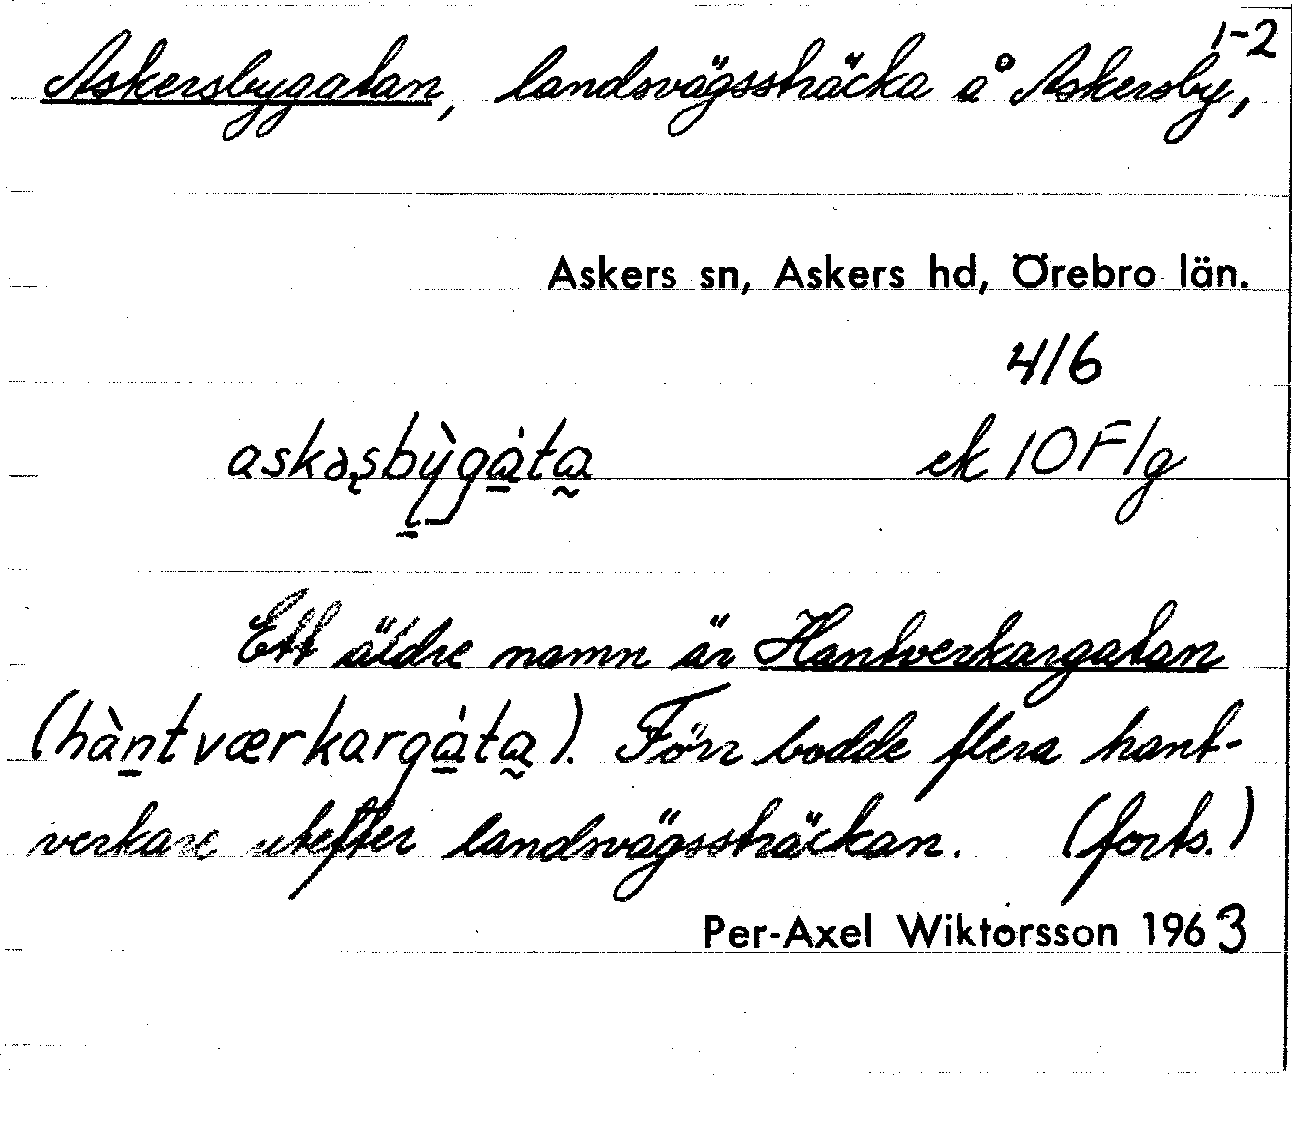 1-2
Askersbygatan, landsvägssträcka å Askersby,
Askers sn, Askers hd, Örebro län.
416
askəṣbỳgáta ek 10 F1g
Ett äldre namn är Hantverkargatan
(hàntværkargáta). Förr bodde flera hant-
verkare utefter landsvägssträckan. (forts.)
Per-Axel Wiktorsson 1963